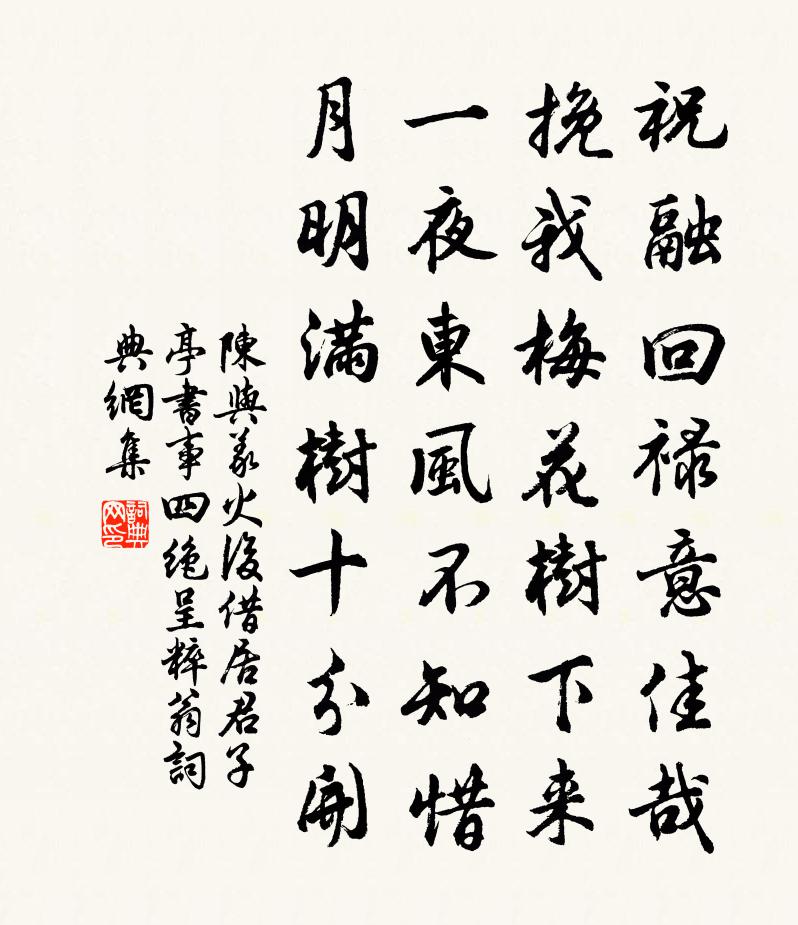 祝融回祿意佳哉
挽我梅花樹下来
一夜東風不知惜
月明滿樹十分開
陳與義火後借居君子
亭書事四絶呈粹翁詞
典網集
詞典
网印